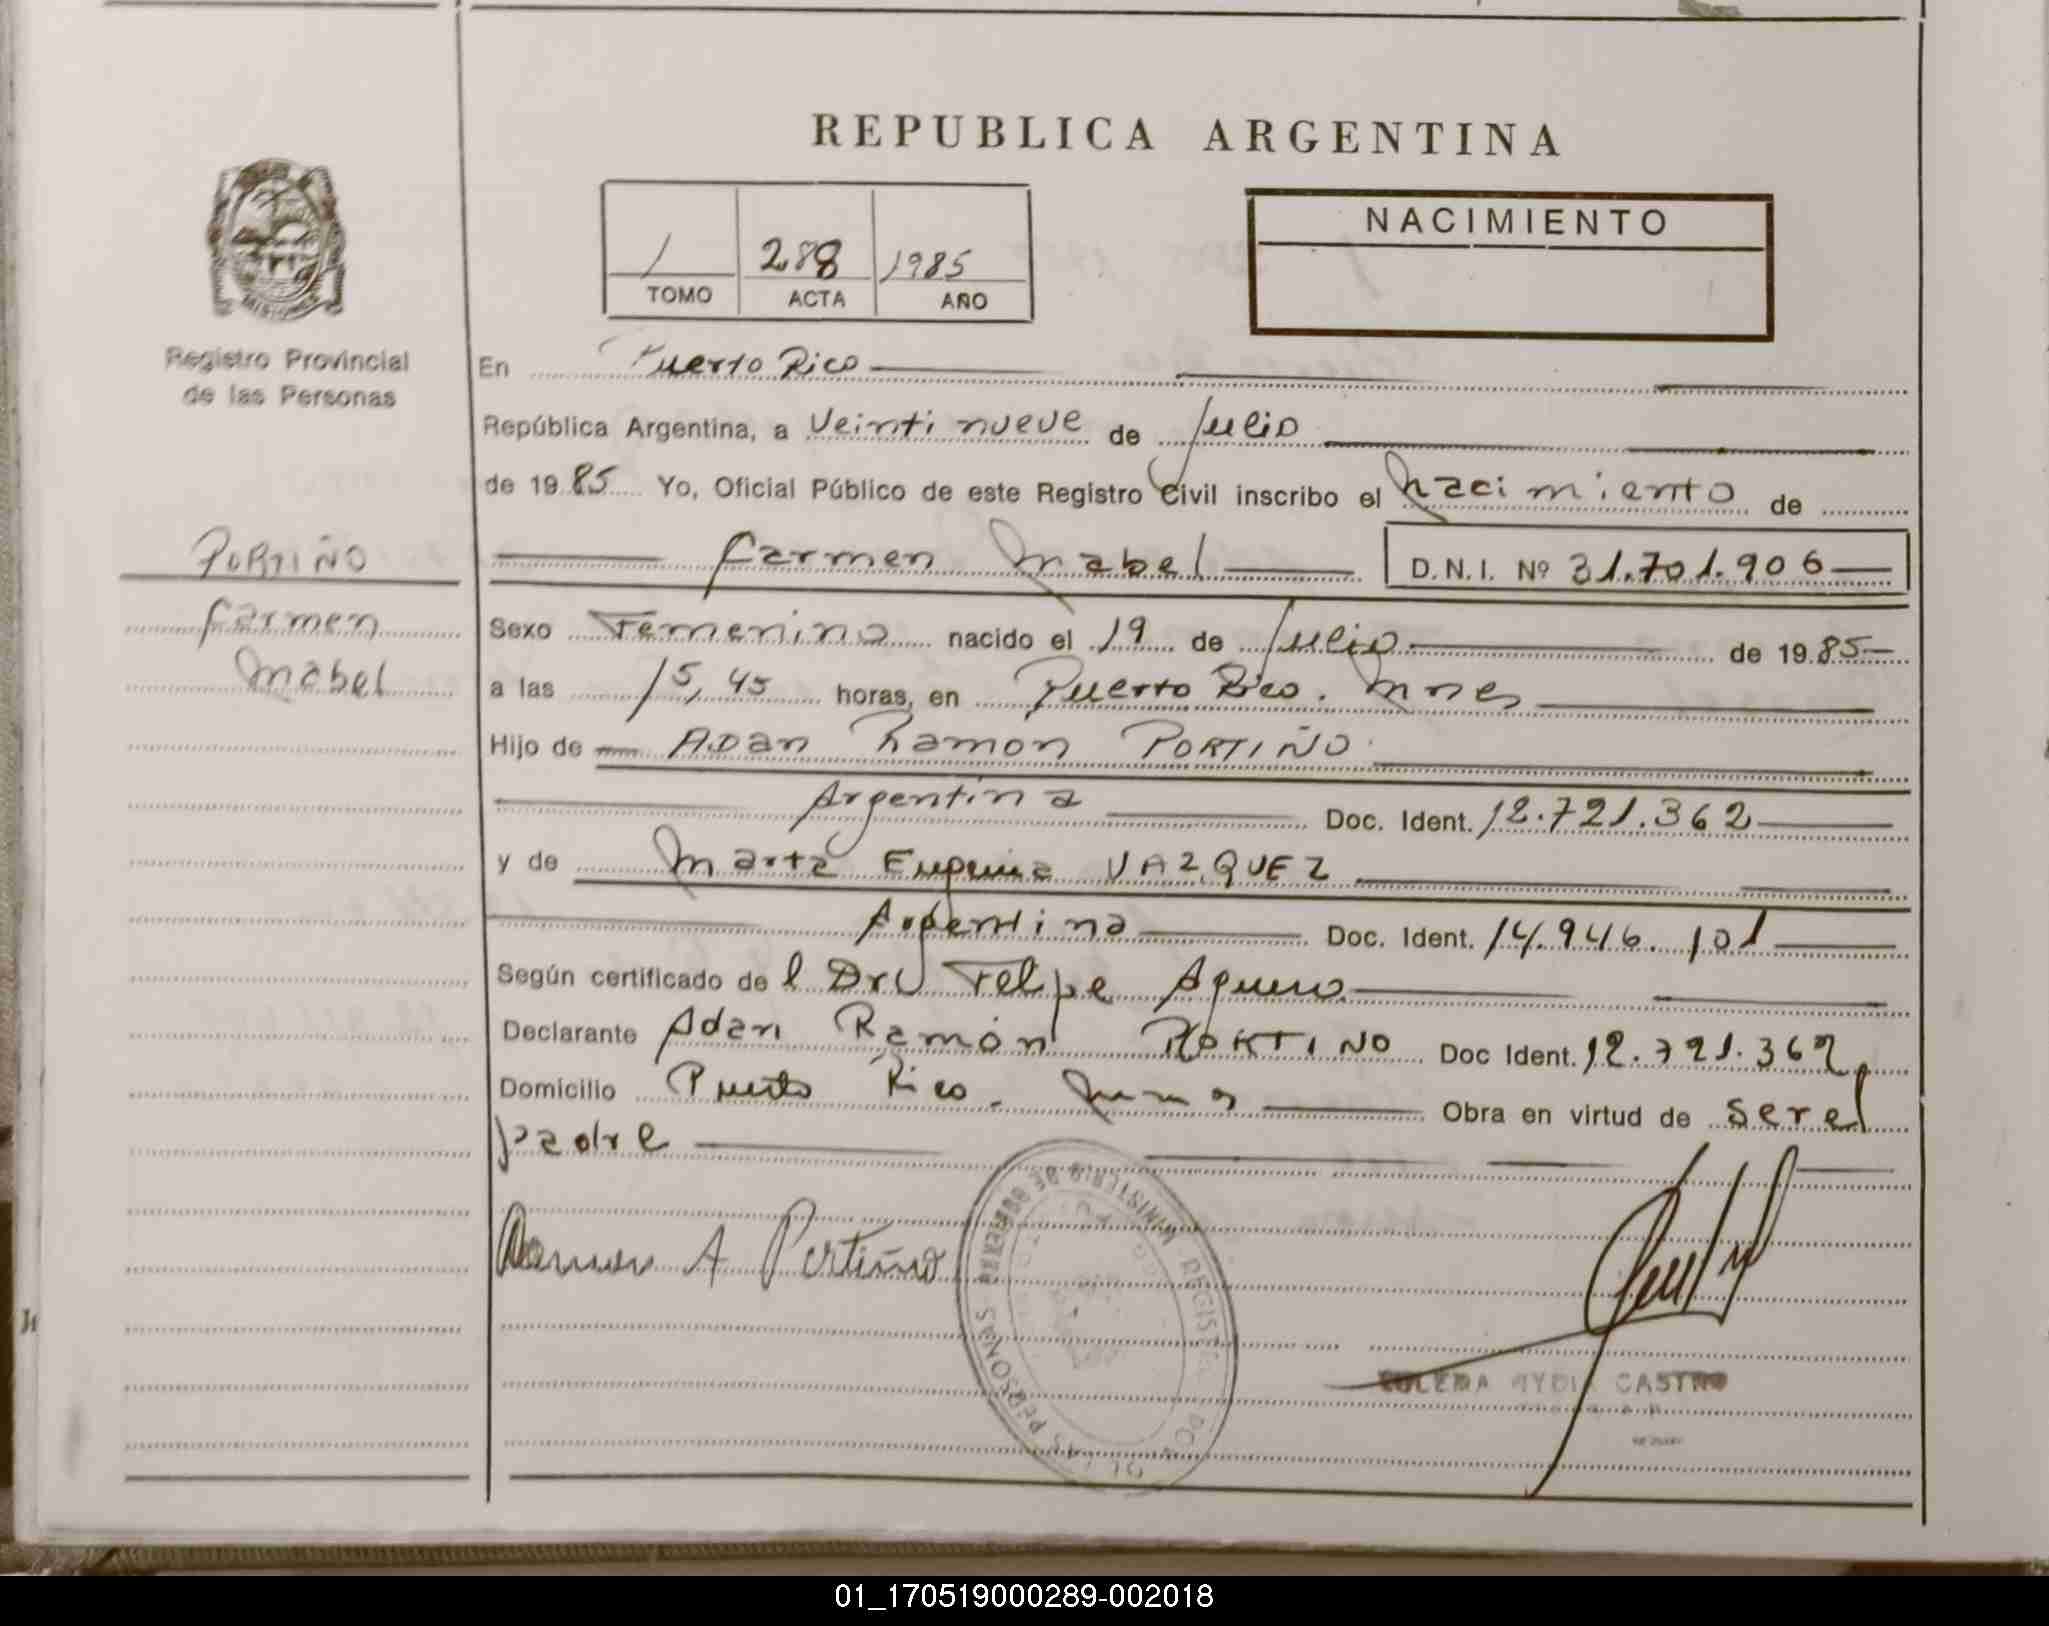 REPUBLICA ARGENTINA
1 288 1985
TOMO ACTA AÑO
NACIMIENTO
MISIONES
Registro Provincial
de las Personas
En Puerto Rico
República Argentina, a Veinti nueve de Julio
de 1985 Yo, Oficial Público de este Registro Civil inscribo el nacimiento de
PORTIÑO
Carmen
Mabel
Carmen Mabel D.N.I. Nº 31.701.906
Sexo Femenino nacido el 19 de Julio de 1985
a las 15,45 horas, en Puerto Rico. Mnes
Hijo de Adan Ramon PORTIÑO
Argentina Doc. Ident. 12.721.362
y de Marta Eugenia VAZQUEZ
Argentina Doc. Ident. 14.946.101
Según certificado de l Dr Felipe Aguero
Declarante Adan Ramón PORTIÑO Doc Ident. 12.721.362
Domicilio Puerto Rico. Mnes Obra en virtud de ser el
padre
Ramon A Portiño
MINISTERIO DE GOBIERNO
REGISTRO
DE LAS PERSONAS
CASTRO
01_170519000289-002018